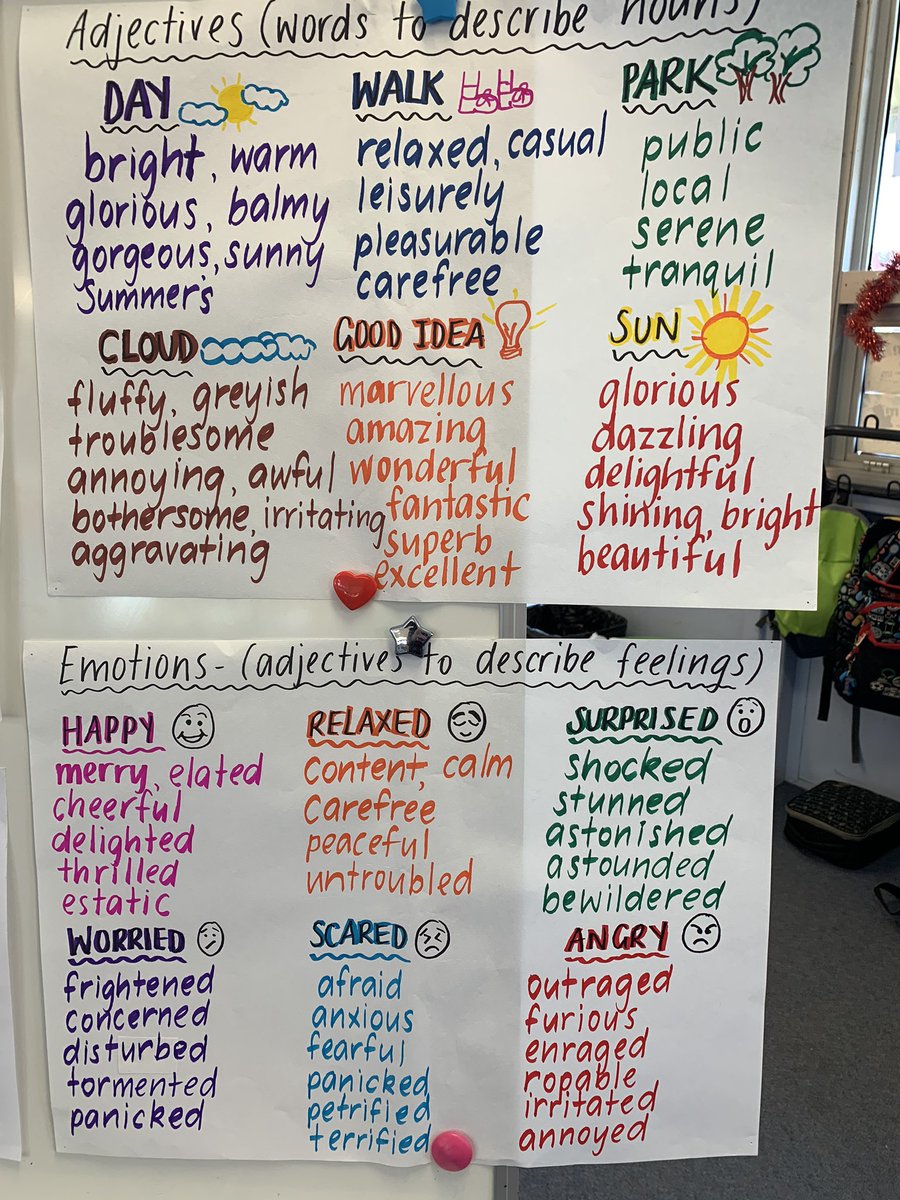 Adjectives (words to describe nouns)
DAY
bright, warm
glorious, balmy
gorgeous, sunny
Summer's
WALK
relaxed, casual
leisurely
pleasurable
carefree
PARK
public
local
serene
tranquil
CLOUD
fluffy, greyish
troublesome
annoying, awful
bothersome, irritating
aggravating
GOOD IDEA
marvellous
amazing
wonderful
fantastic
superb
excellent
SUN
glorious
dazzling
delightful
shining, bright
beautiful
Emotions - (adjectives to describe feelings)
HAPPY
merry, elated
cheerful
delighted
thrilled
estatic
RELAXED
content, calm
carefree
peaceful
untroubled
SURPRISED
shocked
stunned
astonished
astounded
bewildered
WORRIED
frightened
concerned
disturbed
tormented
panicked
SCARED
afraid
anxious
fearful
panicked
petrified
terrified
ANGRY
outraged
furious
enraged
ropable
irritated
annoyed